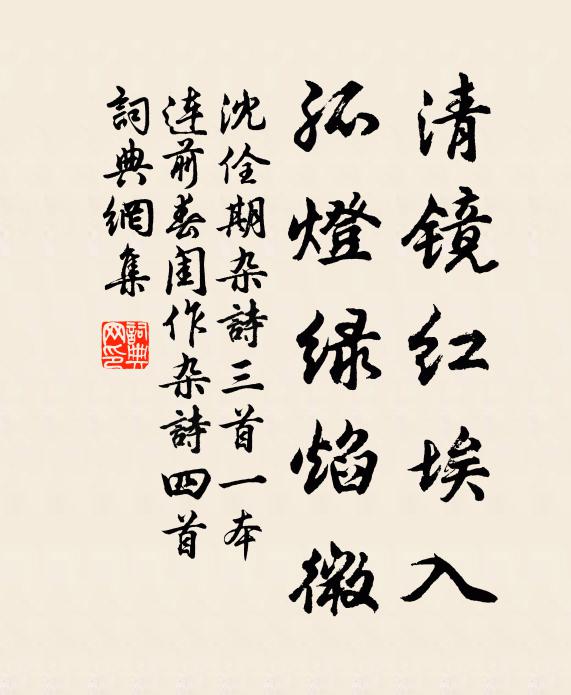 清镜红埃入
孤燈绿焰微
沈佺期杂詩三首一本
连前春闺作杂詩四首
詞典網集
詞典网印